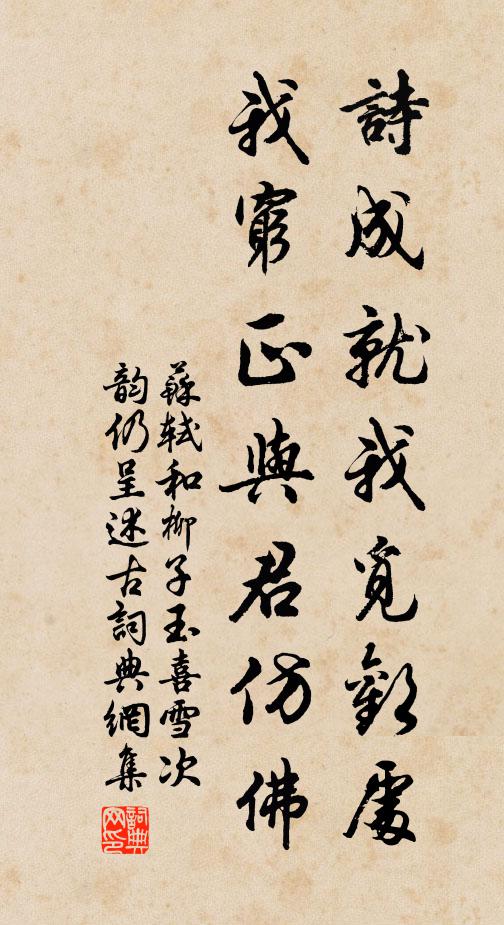 詩成就我覓歡處
我窮正與君仿佛
蘇軾和柳子玉喜雪次
韵仍呈述古詞典網集
詞典网印